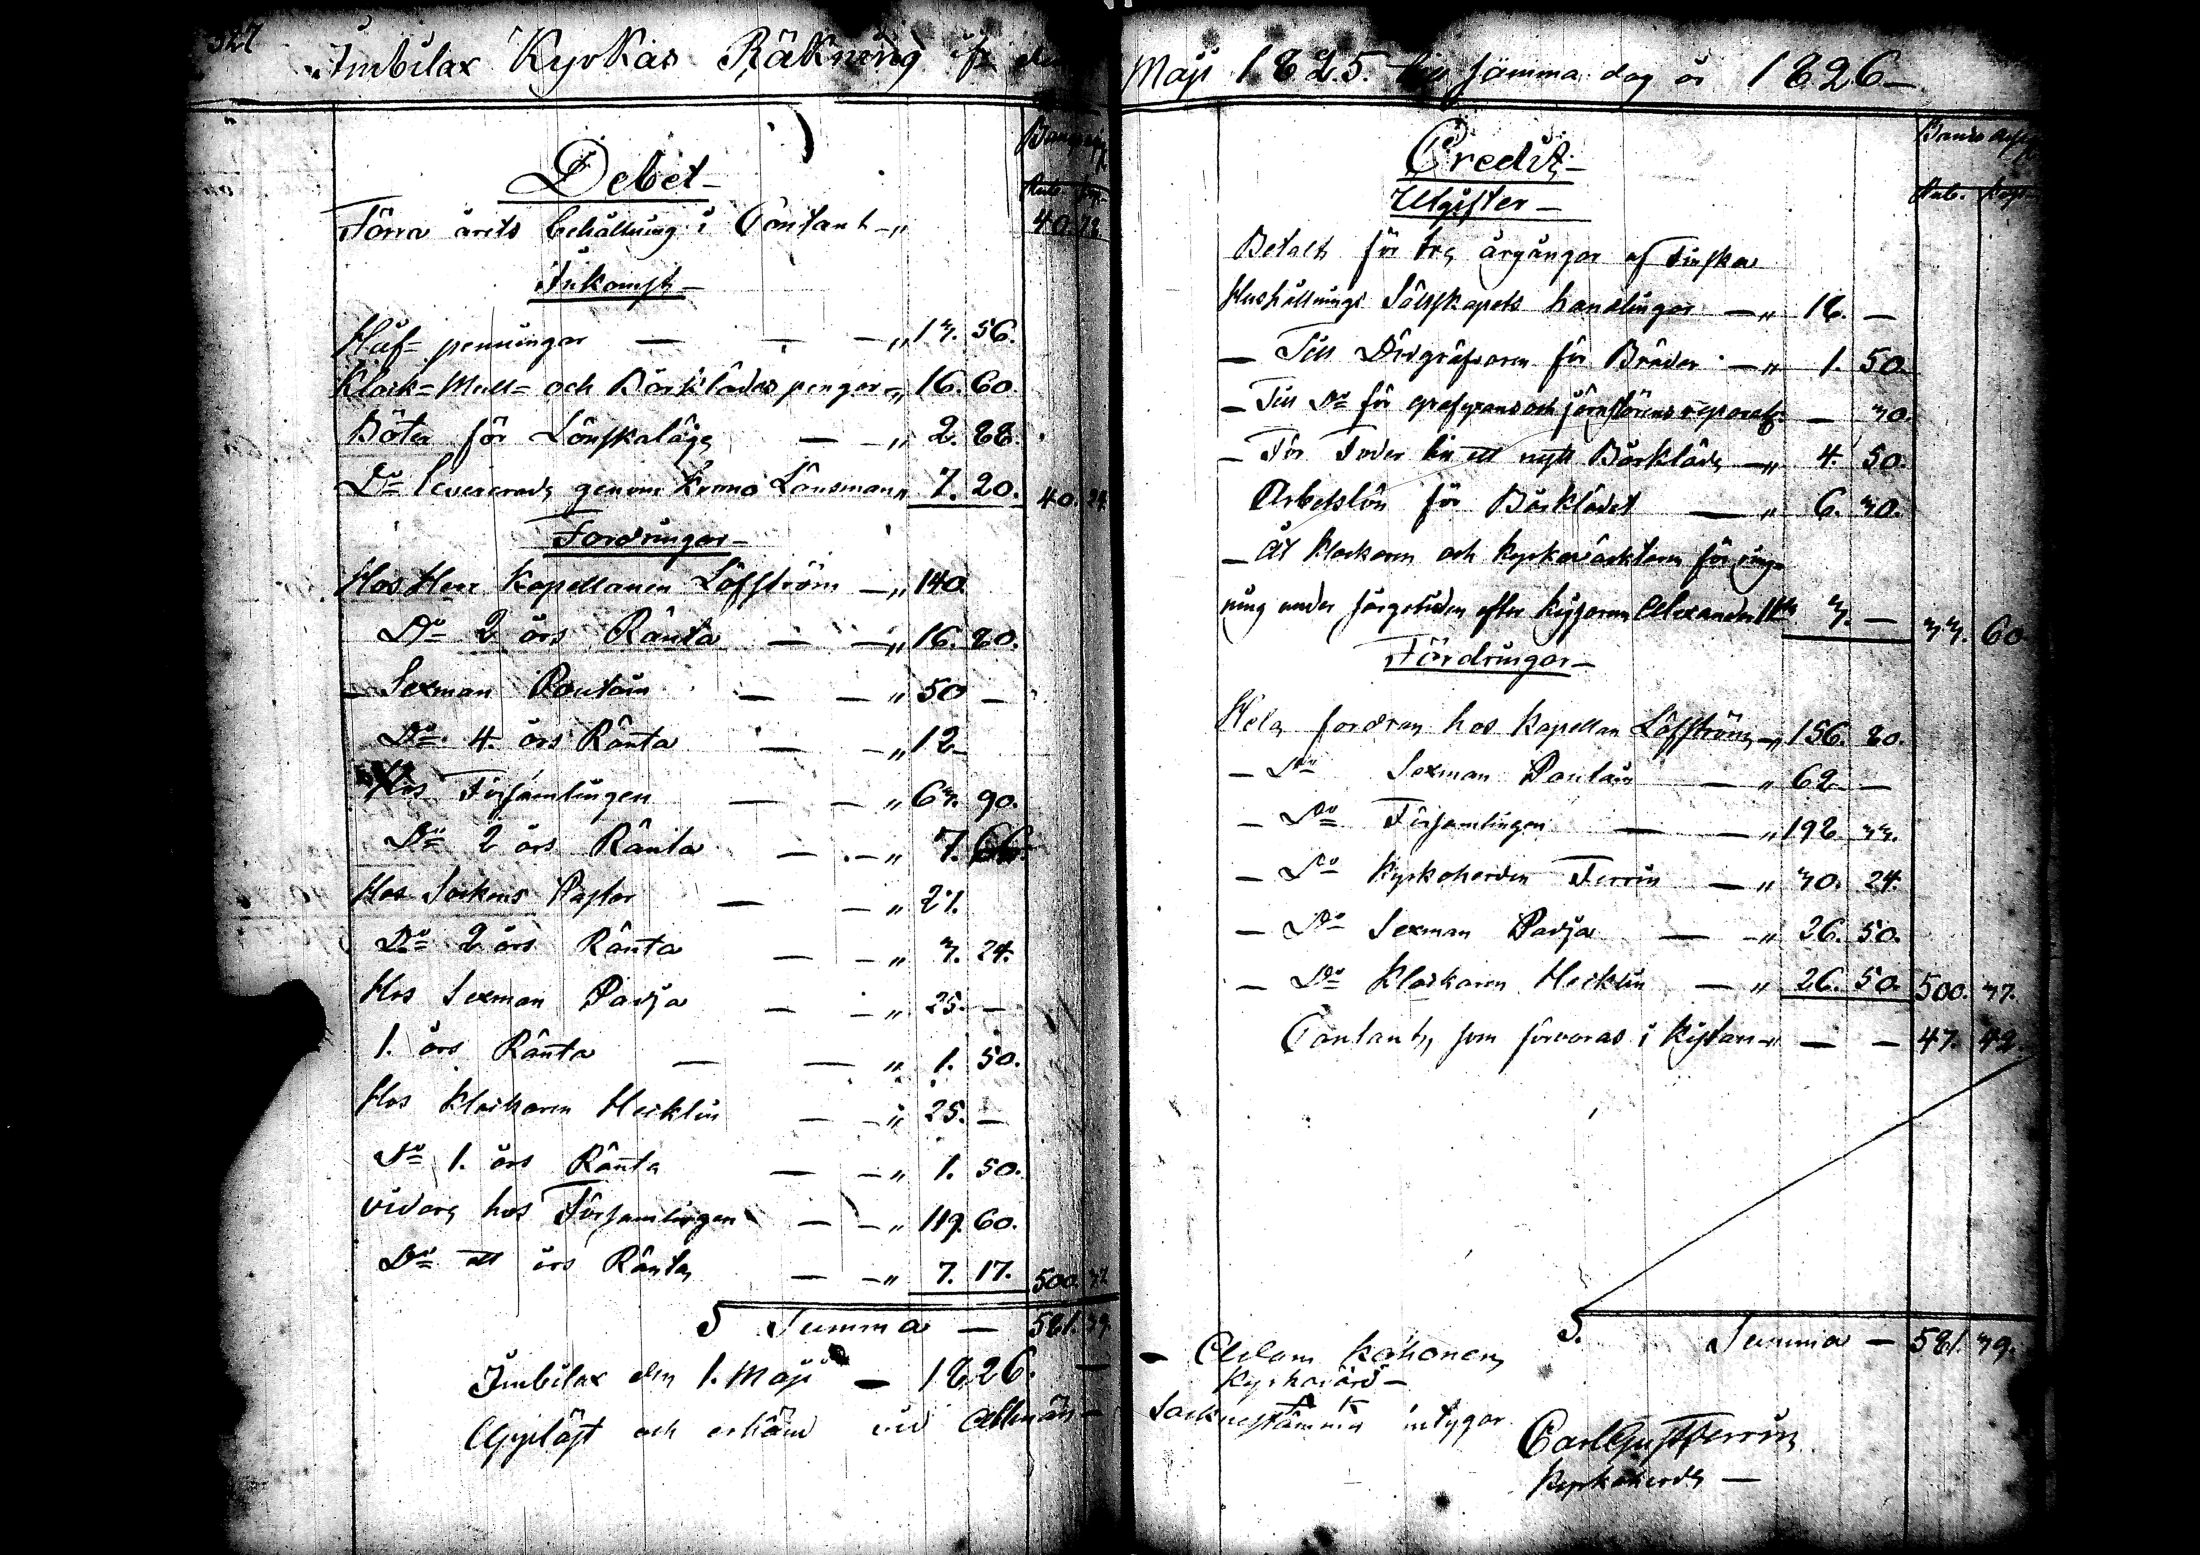 327
Imbilax Kyrkas Räkning ifr. den
Debet
Rub.
Förra årets behållning i Contant 40. 78
Inkomst
Håf-penningar 13. 56.
Klock- Mull- och Bårklädes pengar 16. 60.
Böter för Lönskaläge 2. 88.
D:o levererade genom Krono Länsman 7. 20. 40. 24.
Fordringar
Hos Herr Kapellanen Löfström 140
D:o 2 års Ränta 16. 80.
Sexman Poutain 50 —
D:o 4. års Ränta 12 —
Hos Församlingen 63. 90.
D:o 2 års Ränta 7. 66.
Hos Sockens Pastor 27.
D:o 2 års Ränta 3. 24.
Hos Sexman Parja 25. —
1. års Ränta 1. 50.
Hos Klockaren Hecklin 25. —
D:o 1. års Ränta 1. 50.
vidare hos Församlingen 119. 60.
D:o ett års Ränta 7. 17. 500. 37
S Summa — 581. 39.
Imbilax den 1. Maji — 1826.
Uppläst och erkänd vid Allmän
Maji 1825. till samma dag år 1826 —
Credit
Utgifter
Banco
Rub. Kop.
Betalt för tre årgångar af Finska
Hushållnings Sällskapets handlingar 18. —
— Till Dödgräfvaren för Bräder 1. 50.
— Till D:o för och järnstörens reparat. — 30.
— För Foder till ett nytt Bårkläde 4. 50.
Arbetslön för Bårklädet 6. 30.
— Åt Klockaren och Kyrkoväcktaren för ring-
ning under sorgetiden efter Kejsaren Alexander 3. — 33. 60
Fordringar
Hela fordran hos Kapellan Löfström 156. 80.
— D:o Sexman Poutain 62 —
— D:o Församlingen 198. 33.
— D:o Kyrkoherden Ferrin 30. 24.
— D:o Sexman Parja 26. 50.
— D:o Klockaren Hecklin 26. 50. 500. 37.
Contant, som förvaras i Kistan — — 47. 42.
S. Summa — 581. 39.
Adam Kähonen
Kyrkovärd —
Socknestämma intygar
Carl Gust Ferrin
Kyrkoherde —